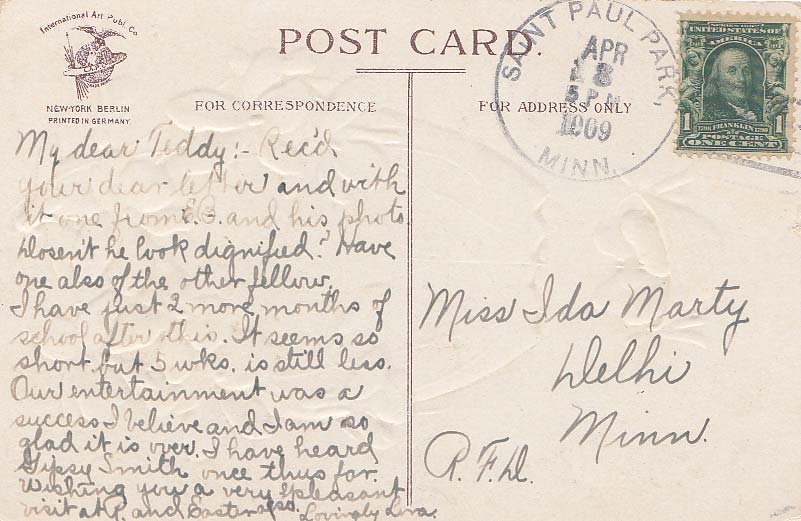 International Art Publ. Co.
NEW-YORK BERLIN
PRINTED IN GERMANY
POST CARD.
FOR CORRESPONDENCE
FOR ADDRESS ONLY
SAINT PAUL PARK,
APR
5 PM
1909
MINN.
SERIES 1902
UNITED STATES OF
AMERICA
1 FRANKLIN 1
POSTAGE
ONE CENT
My dear Teddy:- Rec'd
your dear letter and with
it one from E.B. and his photo.
Dosen't he look dignified? Have
one also of the other fellow.
I have just 2 more months of
school after this. It seems so
short but 5 wks. is still less.
Our entertainment was a
success I believe and I am so
glad it is over. I have heard
Gipsy Smith once thus far.
Wishing you a very pleasant
visit at P. and Easter also.
Lovingly
Miss Ida Marty
Delhi
Minn.
R.F.D.